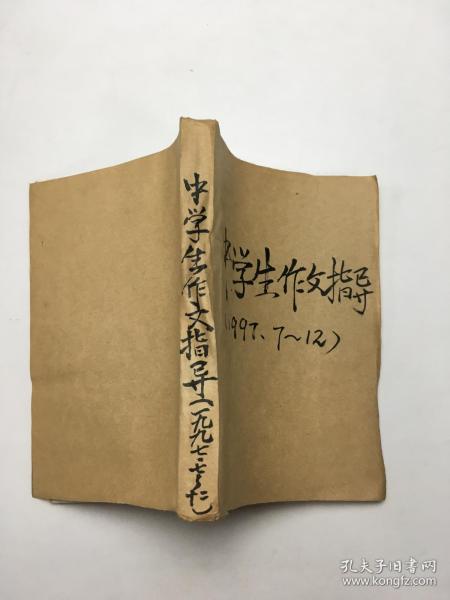 中学生作文指导(一九九七·七~十二)
中学生作文指导
(1997、7~12)
孔夫子旧书网
www.kongfz.com